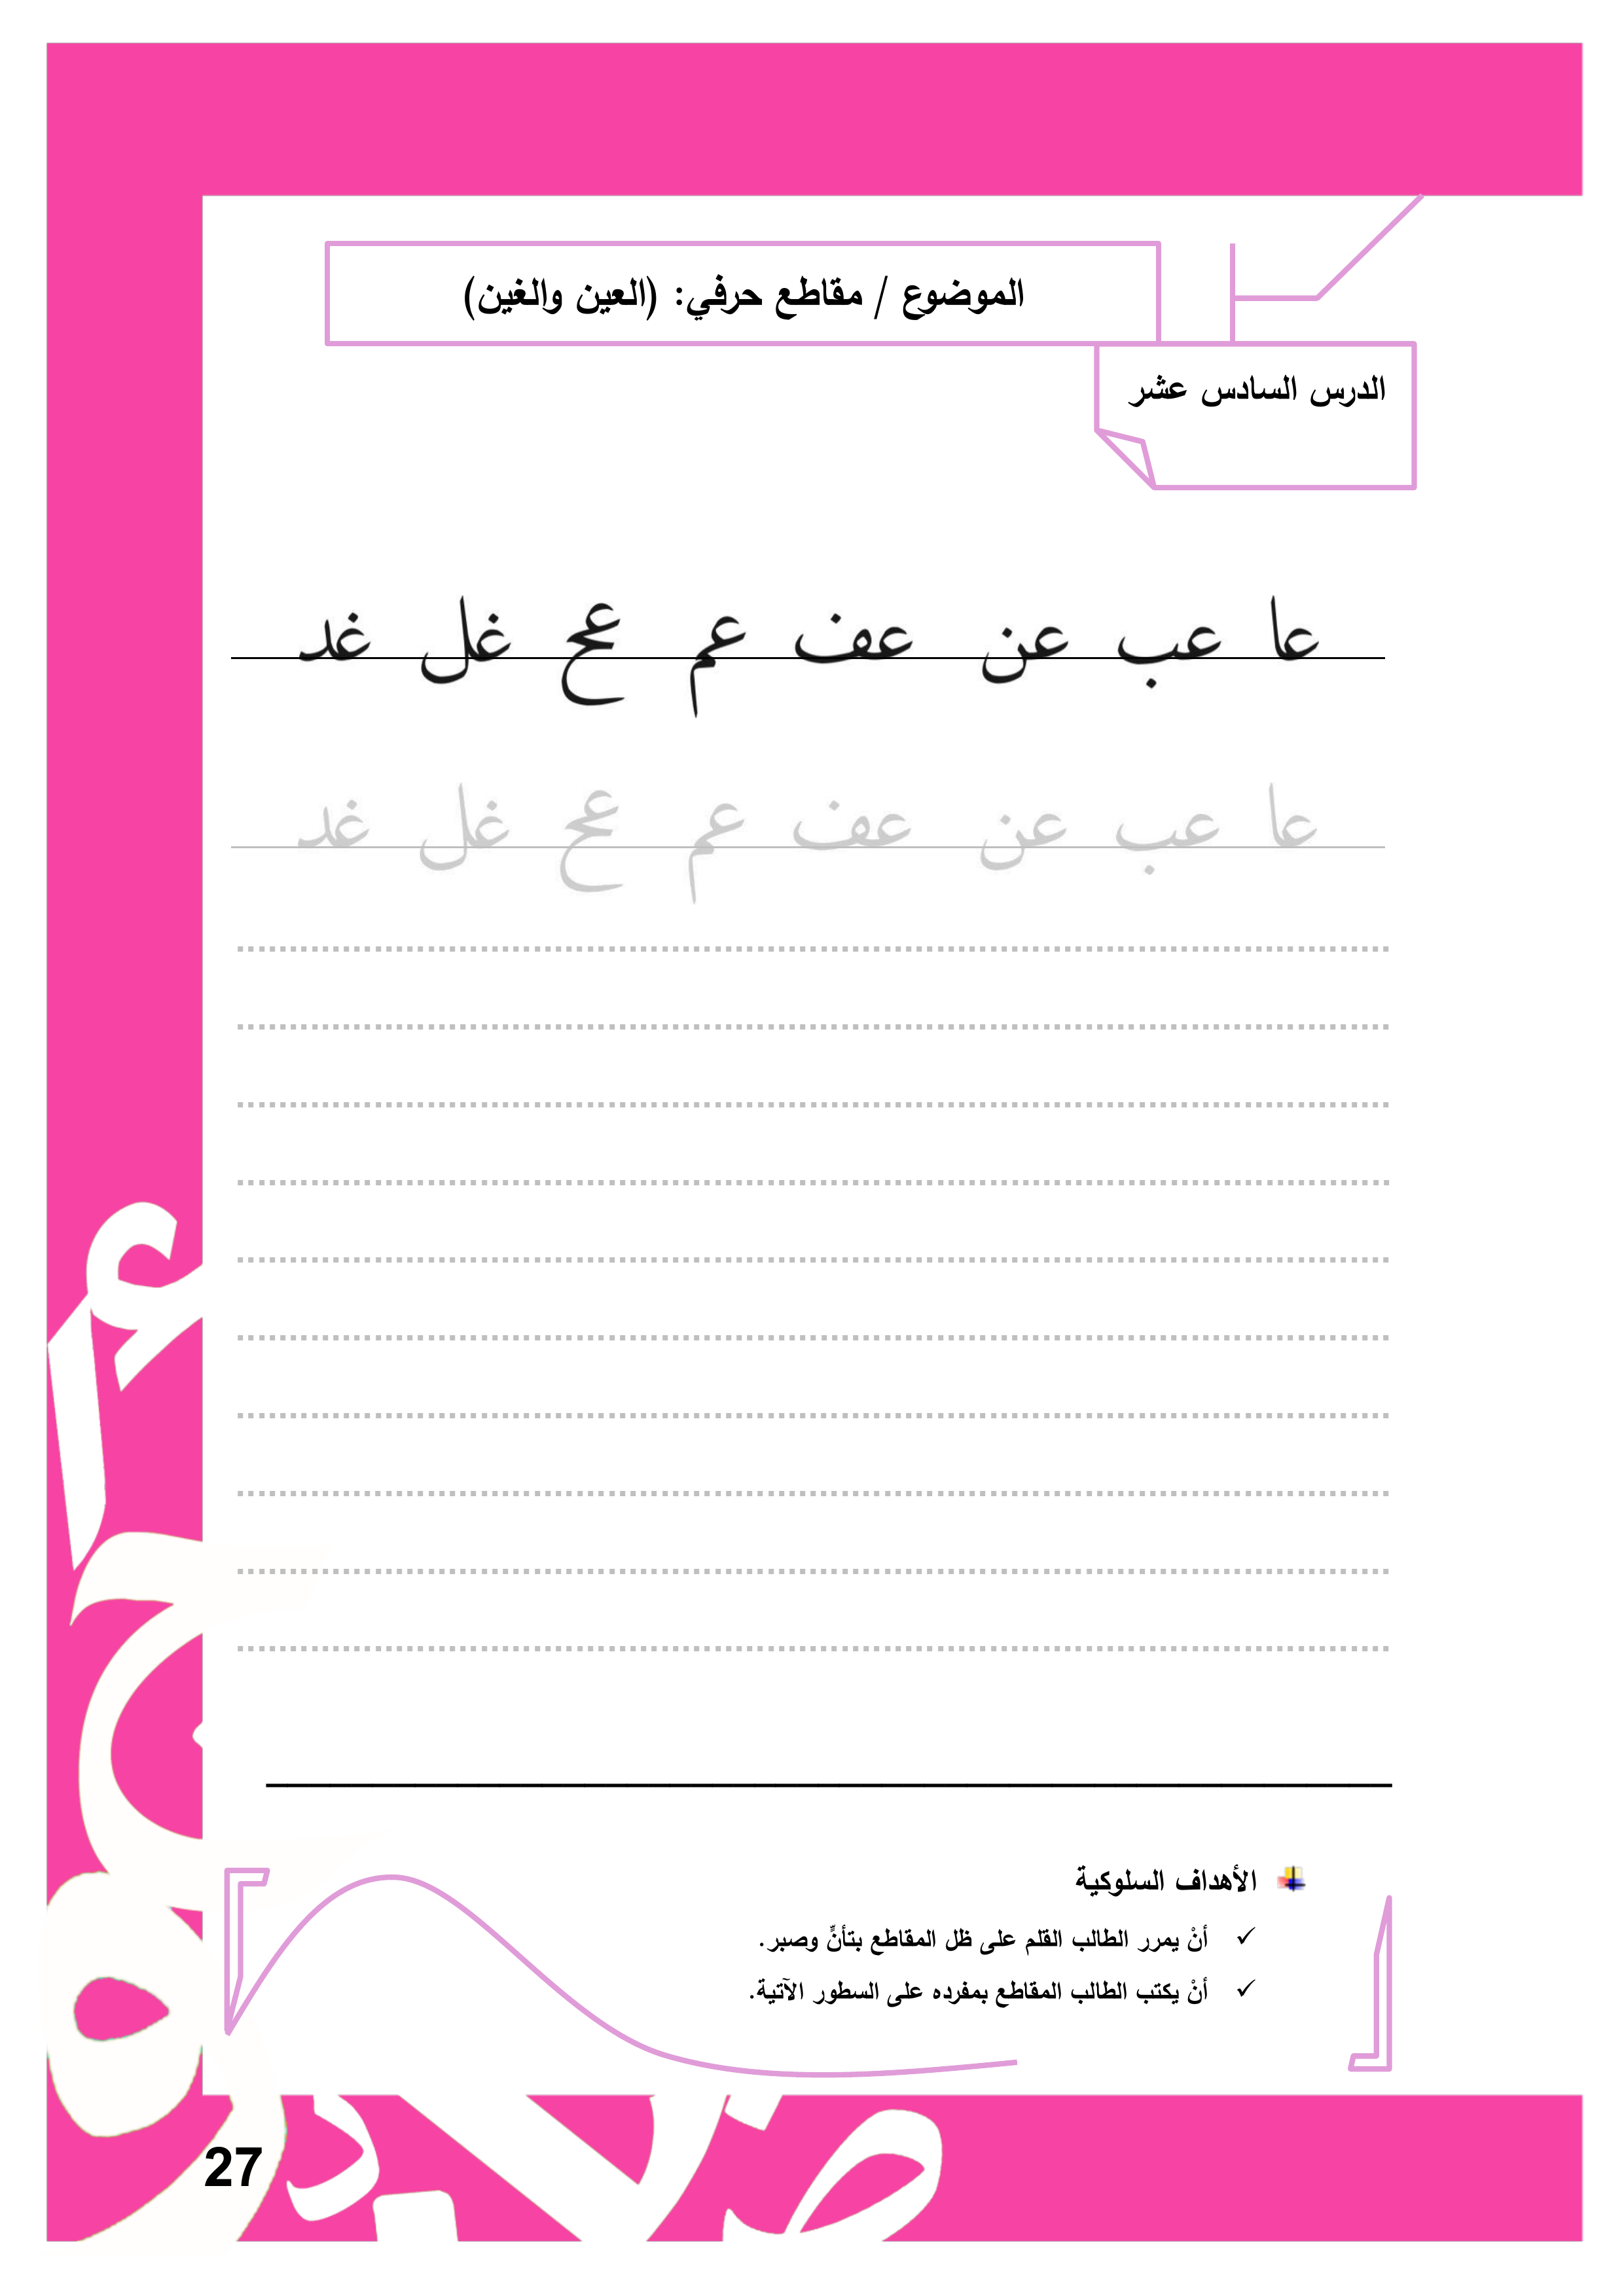 الموضوع / مقاطع حرفي: (العين والغين)
الدرس السادس عشر
عا عب عن عف عم عح غل غد
عا عب عن عف عم عح غل غد
الأهداف السلوكية
✓ أنْ يمرر الطالب القلم على ظل المقاطع بتأنٍّ وصبر.
✓ أنْ يكتب الطالب المقاطع بمفرده على السطور الآتية.
27